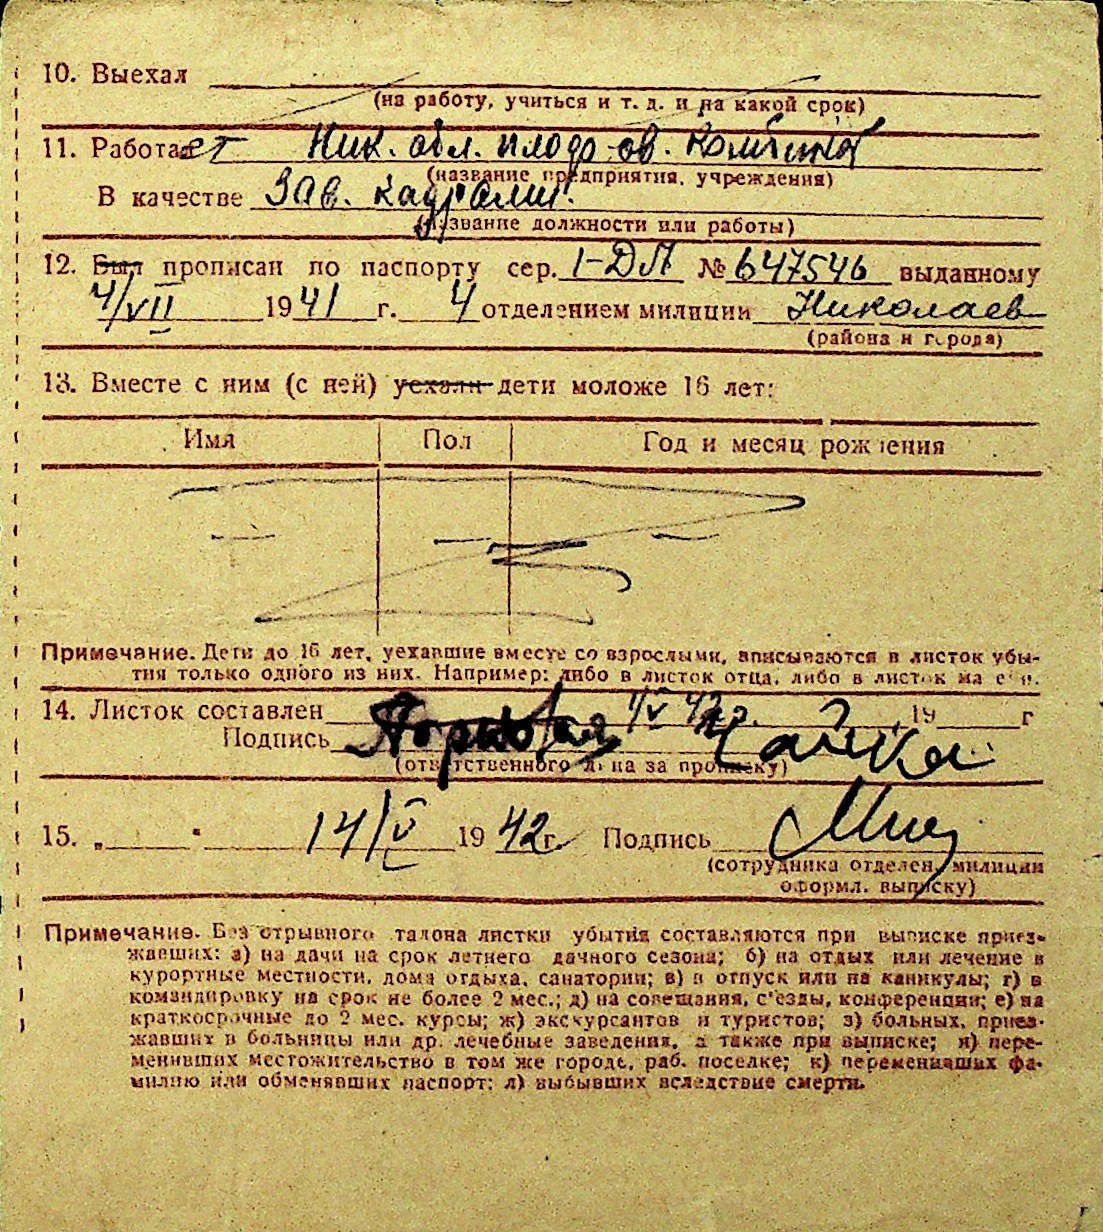 10. Выехал
(на работу, учиться и т. д. и на какой срок)
11. Работает Ник. обл. плодо-ов. Комбинат
(название предприятия, учреждения)
В качестве Зав. кадрами.
(название должности или работы)
12. Был прописан по паспорту сер. I-ДЛ № 647546 выданному
4/VII 1941 г. 4 отделением милиции Николаев
(района и города)
13. Вместе с ним (с ней) уехали дети моложе 16 лет:
Имя Пол Год и месяц рождения
Примечание. Дети до 16 лет, уехавшие вместе со взрослыми, вписываются в листок убы-
тия только одного из них. Например: либо в листок отца, либо в листок матери.
14. Листок составлен 1/V 42 г. 19 г
Подпись Чайка
(ответственного лица за прописку)
15. „ " 14/V 1942 г. Подпись
(сотрудника отделен. милиции
оформл. выписку)
Примечание. Без отрывного талона листки убытия составляются при выписке приез-
жавших: а) на дачи на срок летнего дачного сезона; б) на отдых или лечение в
курортные местности, дома отдыха, санатории; в) в отпуск или на каникулы; г) в
командировку на срок не более 2 мес.; д) на совещания, с'езды, конференции; е) на
краткосрочные до 2 мес. курсы; ж) экскурсантов и туристов; з) больных, приез-
жавших в больницы или др. лечебные заведения, а также при выписке; и) пере-
менивших местожительство в том же городе, раб. поселке; к) переменивших фа-
милию или обменявших паспорт; л) выбывших вследствие смерти.